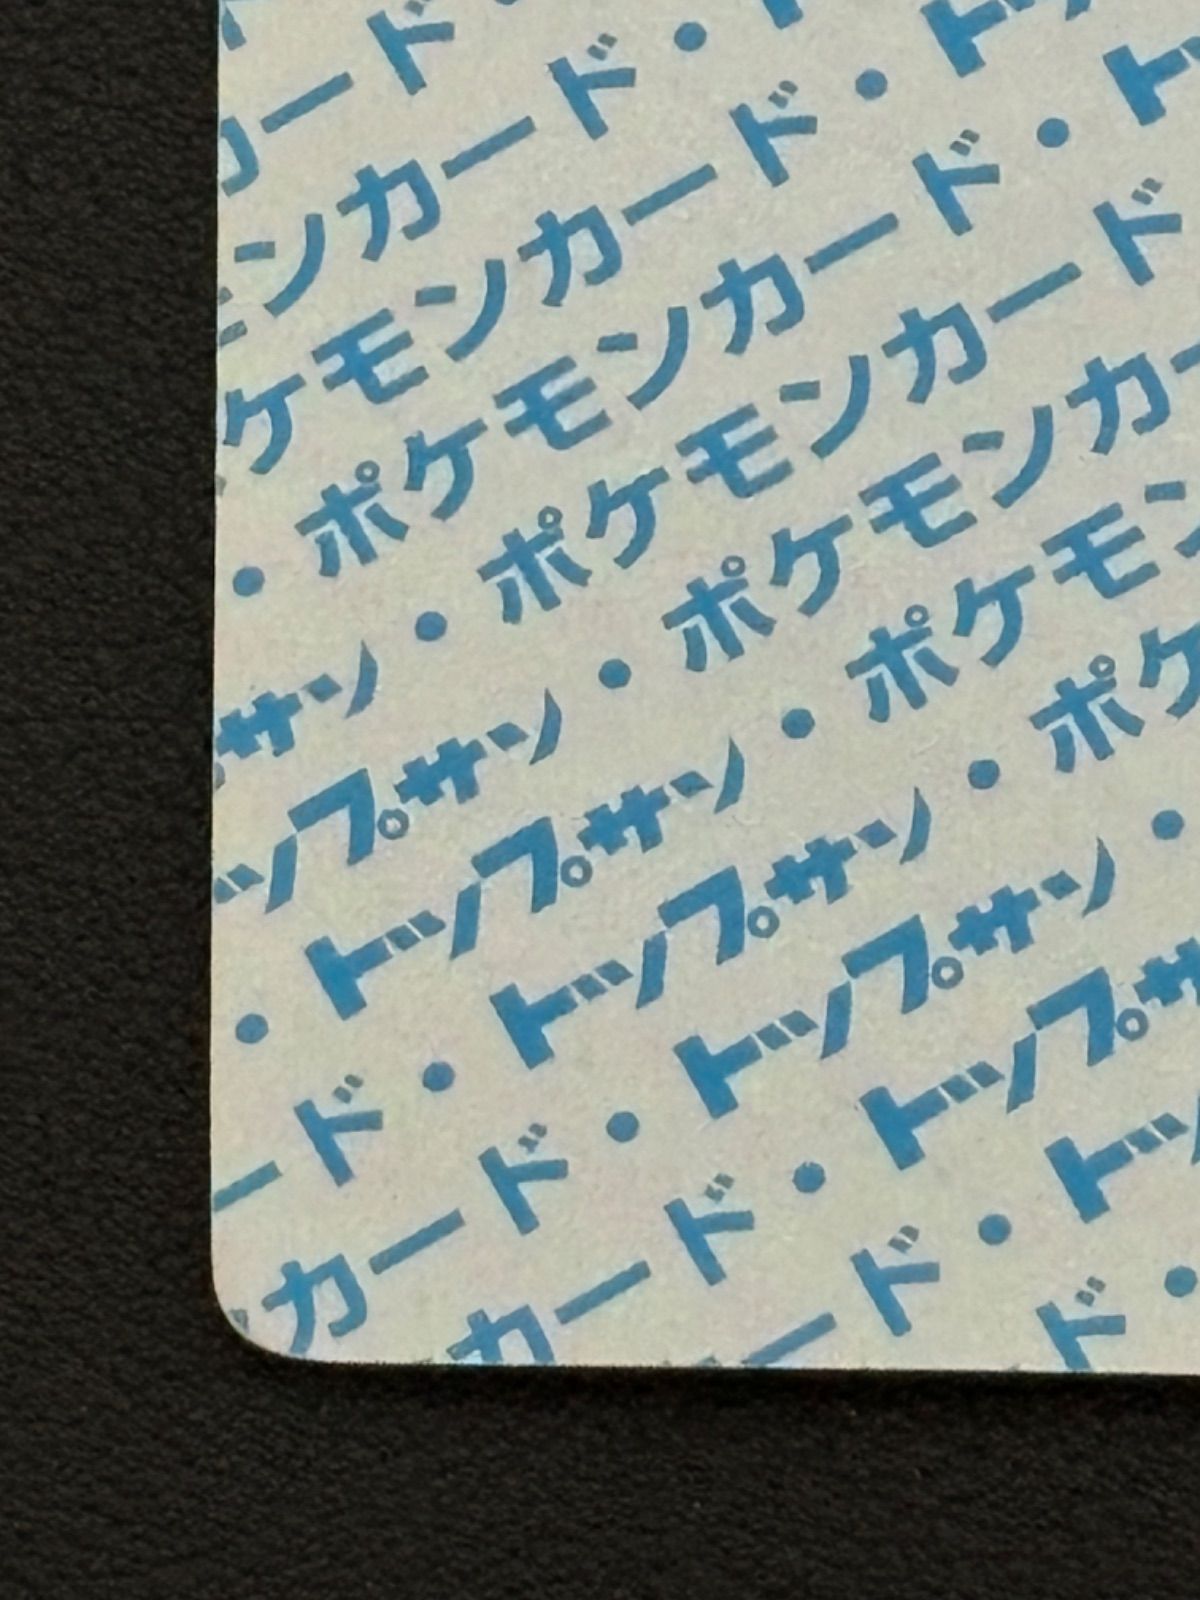 カード
ンカード・
ケモンカード・ト
・ポケモンカード・ト
サン・ポケモンカード
ップサン・ポケモンカー
・トップサン・ポケモン
ード・トップサン・ポケ
カード・トップサン・
カード・トップサ
ード・トッ
ド・